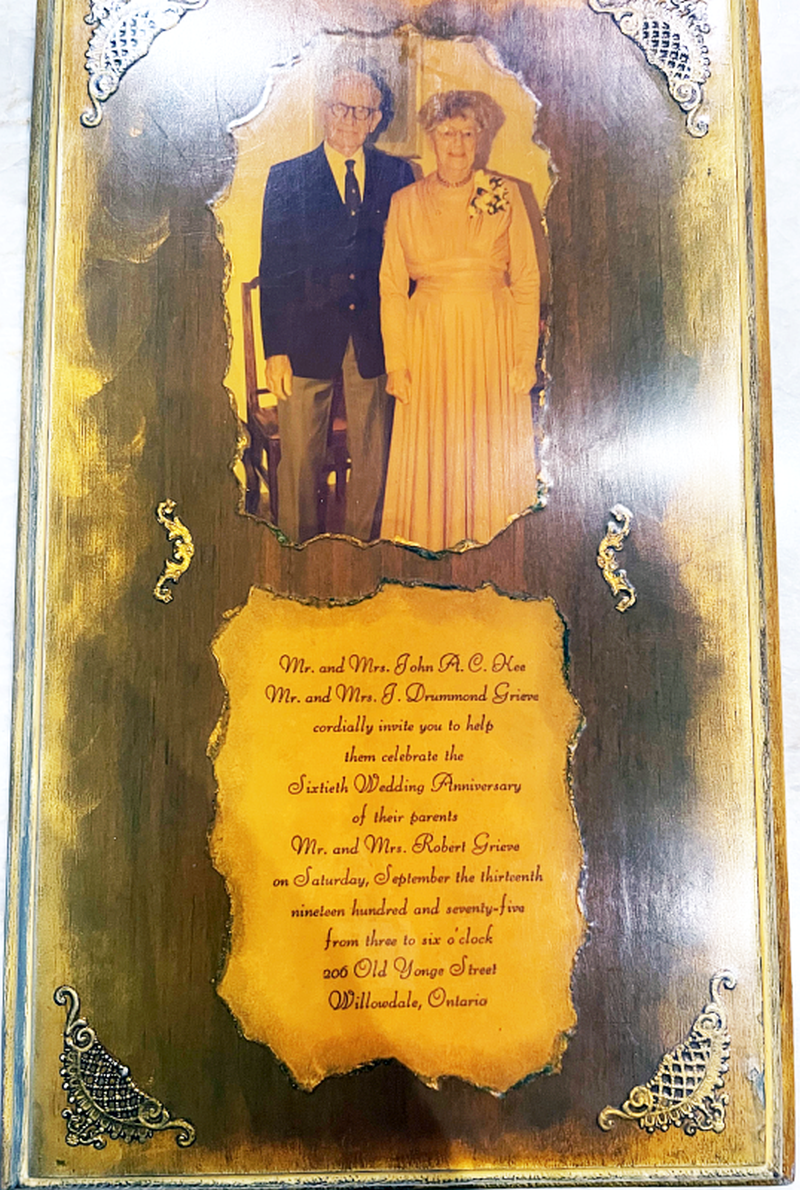 Mr. and Mrs. John A. C. Kee
Mr. and Mrs. J. Drummond Grieve
cordially invite you to help
them celebrate the
Sixtieth Wedding Anniversary
of their parents
Mr. and Mrs. Robert Grieve
on Saturday, September the thirteenth
nineteen hundred and seventy-five
from three to six o'clock
206 Old Yonge Street
Willowdale, Ontario